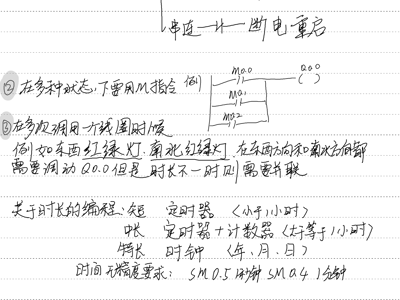 串连 —||— 断电重启
② 在多种状态,下要用M指令 例
M0.0 Q0.0
M0.1
M0.2
③ 在多次调用一个线圈时候
例如东西红绿灯.南北红绿灯.在东西方向和南北方向都
需要调动Q0.0但是时长不一时则需要并联
关于时长的编程:短 定时器 (小于1小时)
中长 定时器+计数器 (大于等于1小时)
特长 时钟 (年、月、日)
时间无精度要求: SM0.5 1秒钟 SM0.4 1分钟